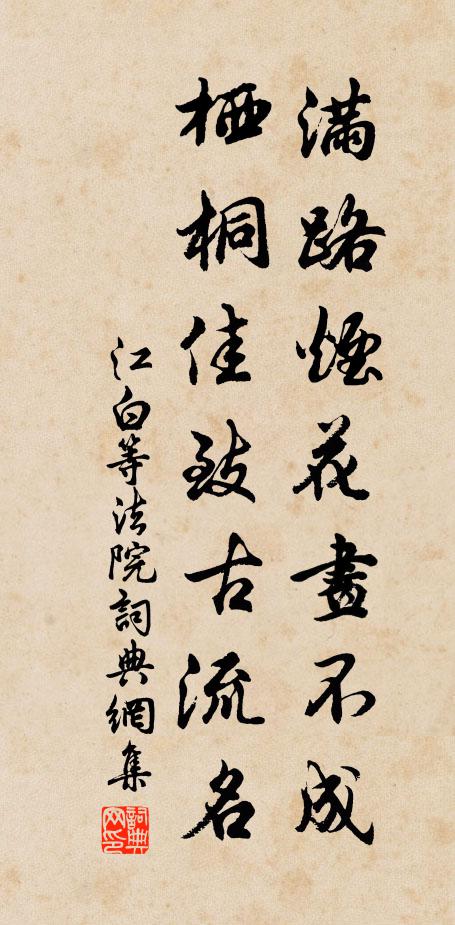 滿路煙花畫不成
栖桐佳致古流名
江白等法院詞典網集
詞典网印